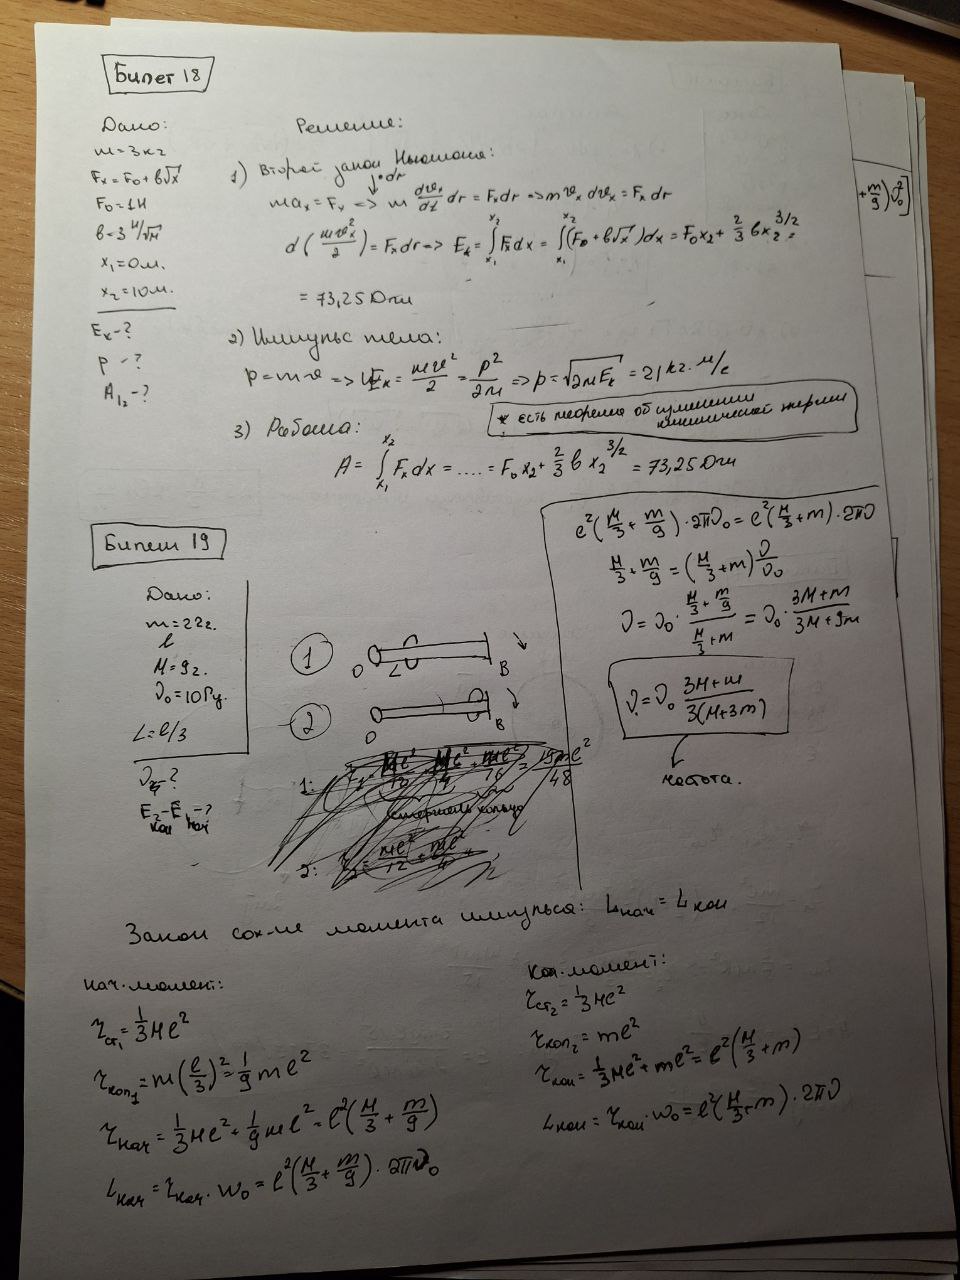 Билет 18
Дано:
m = 3 кг
Fx = F₀ + b√x
F₀ = 1 Н
b = 3 Н/√м
x₁ = 0 м.
x₂ = 10 м.
Eк - ?
p - ?
A₁₂ - ?
Решение:
1) Второй закон Ньютона:
• dr
maₓ = Fₓ => m dvₓ/dt dr = Fₓdr => mvₓ dvₓ = Fₓ dr
d(mvₓ²/2) = Fₓdr => Eк = ∫Fₓdx = ∫(F₀ + b√x)dx = F₀x₂ + 2/3 bx₂^3/2 =
= 73,25 Дж
2) Импульс тела:
p = mv => Eк = mv²/2 = p²/2m => p = √2mEк = 21 кг·м/с
* есть теорема об изменении
кинетической энергии
3) Работа:
A = ∫Fₓdx = .... = F₀x₂ + 2/3 b x₂^3/2 = 73,25 Дж
Билет 19
Дано:
m = 22 г.
l
M = 9 г.
ν₀ = 10 Гц.
L = l/3
- ?
E₂ - E₁ - ?
кон нач
1
O L B
2
O B
1:
2:
l²(M/3 + m/9)·2πν₀ = l²(M/3 + m)·2πν
M/3 + m/9 = (M/3 + m) ν/ν₀
ν = ν₀ · (M/3 + m/9)/(M/3 + m) = ν₀ · (3M + m)/(3M + 9m)
ν = ν₀ (3M + m)/(3(M + 3m))
частота.
Закон сох-ие момента импульса: Lнач = Lкон
нач. момент:
Iст₁ = 1/3 Ml²
Iкол₁ = m(l/3)² = 1/9 ml²
Iнач = 1/3 Ml² + 1/9 ml² = l²(M/3 + m/9)
Lнач = Iнач · w₀ = l²(M/3 + m/9) · 2πν₀
Кон. момент:
Iст₂ = 1/3 Ml²
Iкол₂ = ml²
Iкон = 1/3 Ml² + ml² = l²(M/3 + m)
Lкон = Iкон · w₀ = l²(M/3 + m) · 2πν
+ m/9)ν₀²]